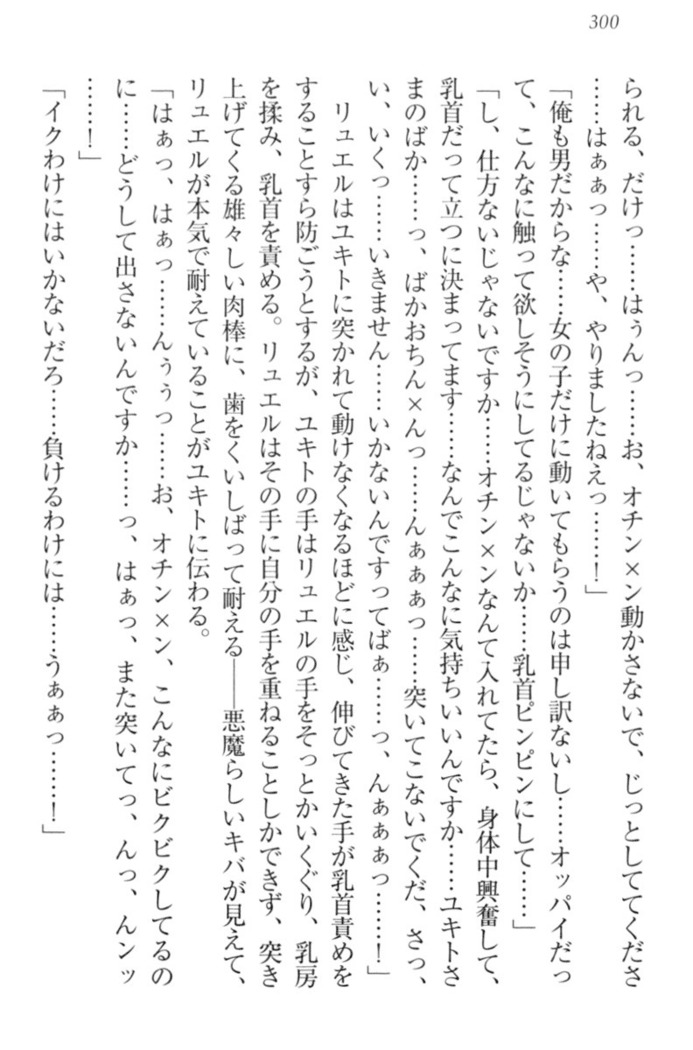 300
られる、だけっ……はぅんっ……お、オチン×ン動かさないで、じっとしててくださ
……はぁぁっ……や、やりましたねえっ……！」
「俺も男だからな……女の子だけに動いてもらうのは申し訳ないし……オッパイだっ
て、こんなに触って欲しそうにしてるじゃないか……乳首ピンピンにして……」
「し、仕方ないじゃないですか……オチン×ンなんて入れてたら、身体中興奮して、
乳首だって立つに決まってます……なんでこんなに気持ちいいんですか……ユキトさ
まのばか……っ、ばかおちん×んっ……んぁぁぁっ……突いてこないでくだ、さっ、
い、いくっ……いきません……いかないんですってばぁ……っ、んぁぁぁっ……！」
　リュエルはユキトに突かれて動けなくなるほどに感じ、伸びてきた手が乳首責めを
することすら防ごうとするが、ユキトの手はリュエルの手をそっとかいくぐり、乳房
を揉み、乳首を責める。リュエルはその手に自分の手を重ねることしかできず、突き
上げてくる雄々しい肉棒に、歯をくいしばって耐える――悪魔らしいキバが見えて、
リュエルが本気で耐えていることがユキトに伝わる。
「はぁっ、はぁっ……んぅぅっ……お、オチン×ン、こんなにビクビクしてるの
に……どうして出さないんですか……っ、はぁっ、また突いてっ、んっ、んンッ
……！」
「イクわけにはいかないだろ……負けるわけには……うぁぁっ……！」